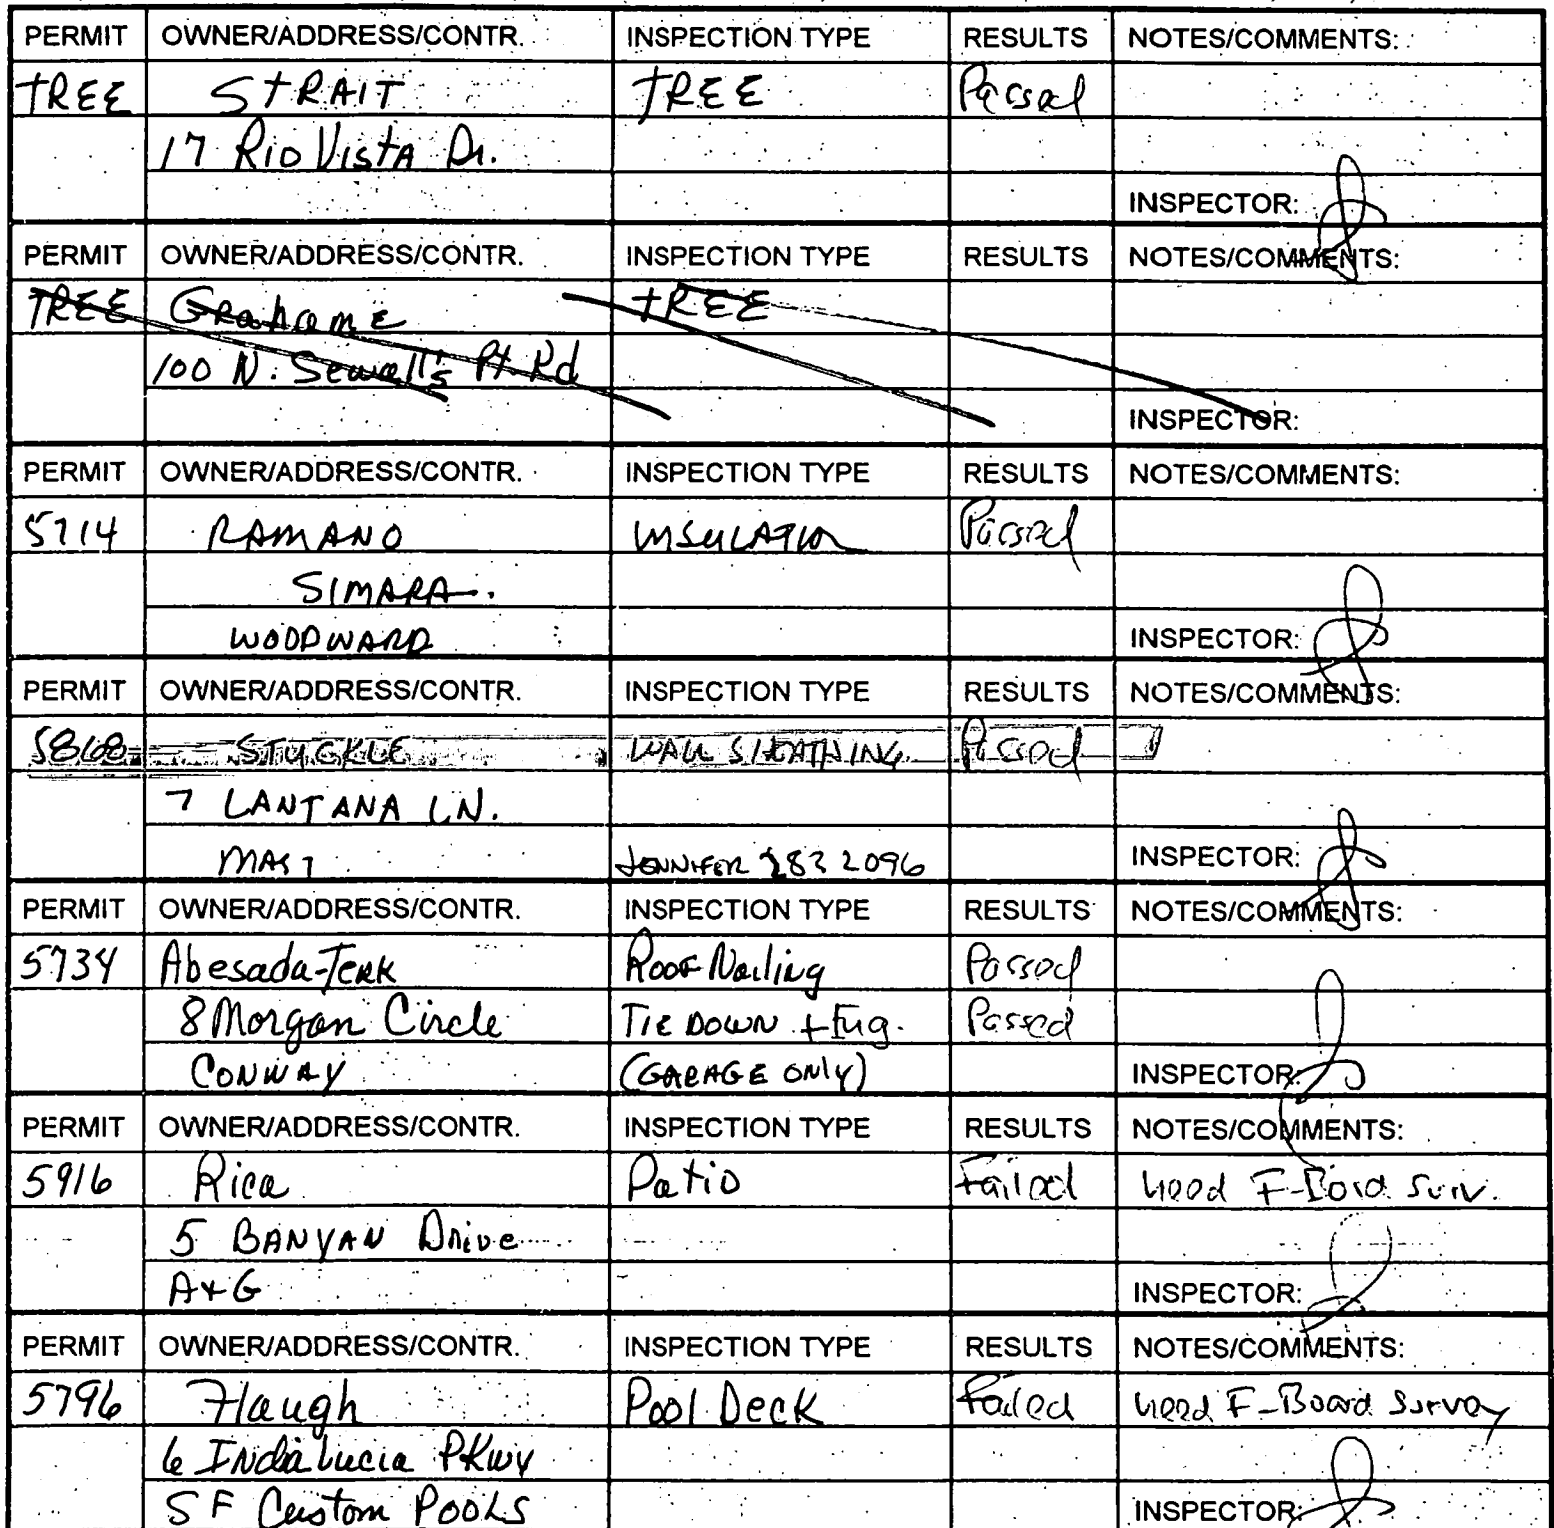 PERMIT OWNER/ADDRESS/CONTR. INSPECTION TYPE RESULTS NOTES/COMMENTS:
TREE STRAIT TREE Passed
17 Rio Vista Dr.
INSPECTOR:
PERMIT OWNER/ADDRESS/CONTR. INSPECTION TYPE RESULTS NOTES/COMMENTS:
TREE Grahame TREE
100 N. Sewall's Pt Rd
INSPECTOR:
PERMIT OWNER/ADDRESS/CONTR. INSPECTION TYPE RESULTS NOTES/COMMENTS:
5714 RAMANO INSULATION Passed
SIMARA.
WOODWARD INSPECTOR:
PERMIT OWNER/ADDRESS/CONTR. INSPECTION TYPE RESULTS NOTES/COMMENTS:
5868 STUCKLE WALL SHEATHING Passed
7 LANTANA LN.
MAST JENNIFER 283 2096 INSPECTOR:
PERMIT OWNER/ADDRESS/CONTR. INSPECTION TYPE RESULTS NOTES/COMMENTS:
5734 Abesada-Terk Roof Nailing Passed
8 Morgan Circle TIE DOWN + Eng. Passed
CONWAY (GARAGE ONLY) INSPECTOR:
PERMIT OWNER/ADDRESS/CONTR. INSPECTION TYPE RESULTS NOTES/COMMENTS:
5916 Rica Patio Failed need F-Bord Surv.
5 BANYAN Drive
A+G INSPECTOR:
PERMIT OWNER/ADDRESS/CONTR. INSPECTION TYPE RESULTS NOTES/COMMENTS:
5796 Haugh Pool Deck Failed need F-Board Survey
6 Indialucia PKwy
SF Custom POOLS INSPECTOR: